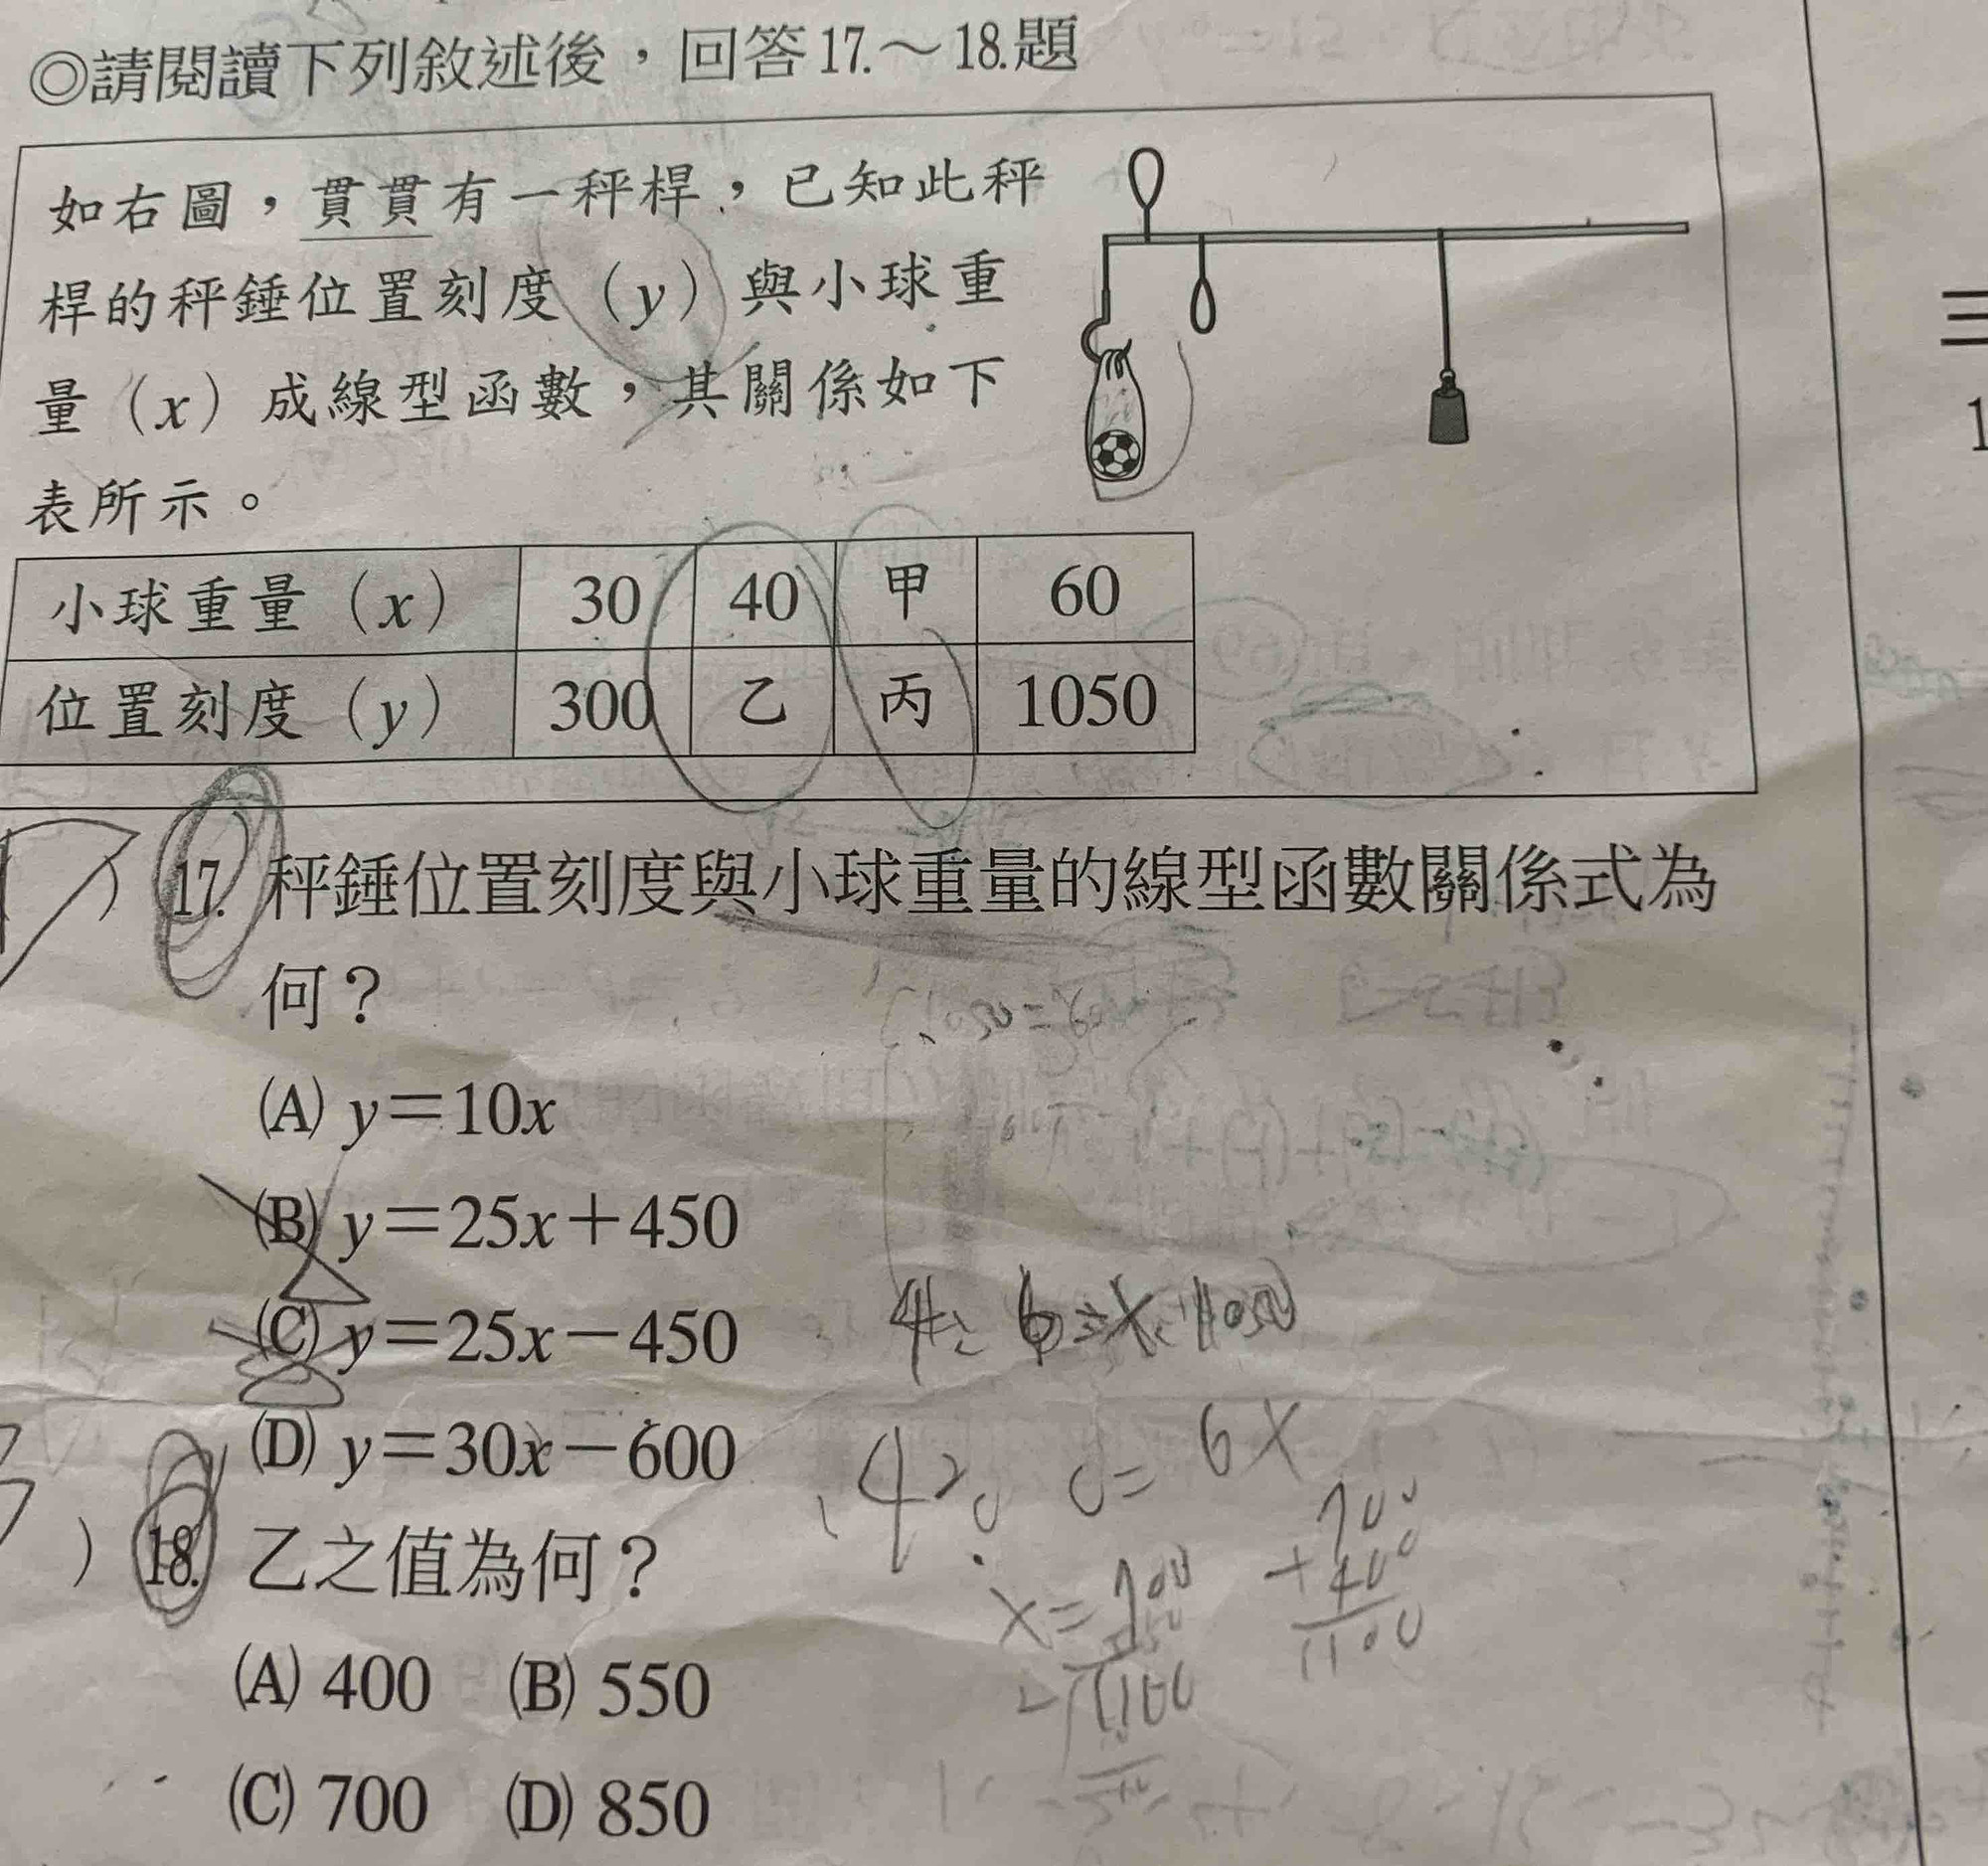 ◎請閱讀下列敘述後，回答17.～18.題
如右圖，貫貫有一秤桿，已知此秤
桿的秤錘位置刻度（y）與小球重
量（x）成線型函數，其關係如下
表所示。
小球重量（x） 30 40 甲 60
位置刻度（y） 300 乙 丙 1050
）17. 秤錘位置刻度與小球重量的線型函數關係式為
何？
(A) y＝10x
(B) y＝25x＋450
(C) y＝25x－450
(D) y＝30x－600
）18. 乙之值為何？
(A) 400 (B) 550
(C) 700 (D) 850
三
1
6X
700
+400
1100
x=700